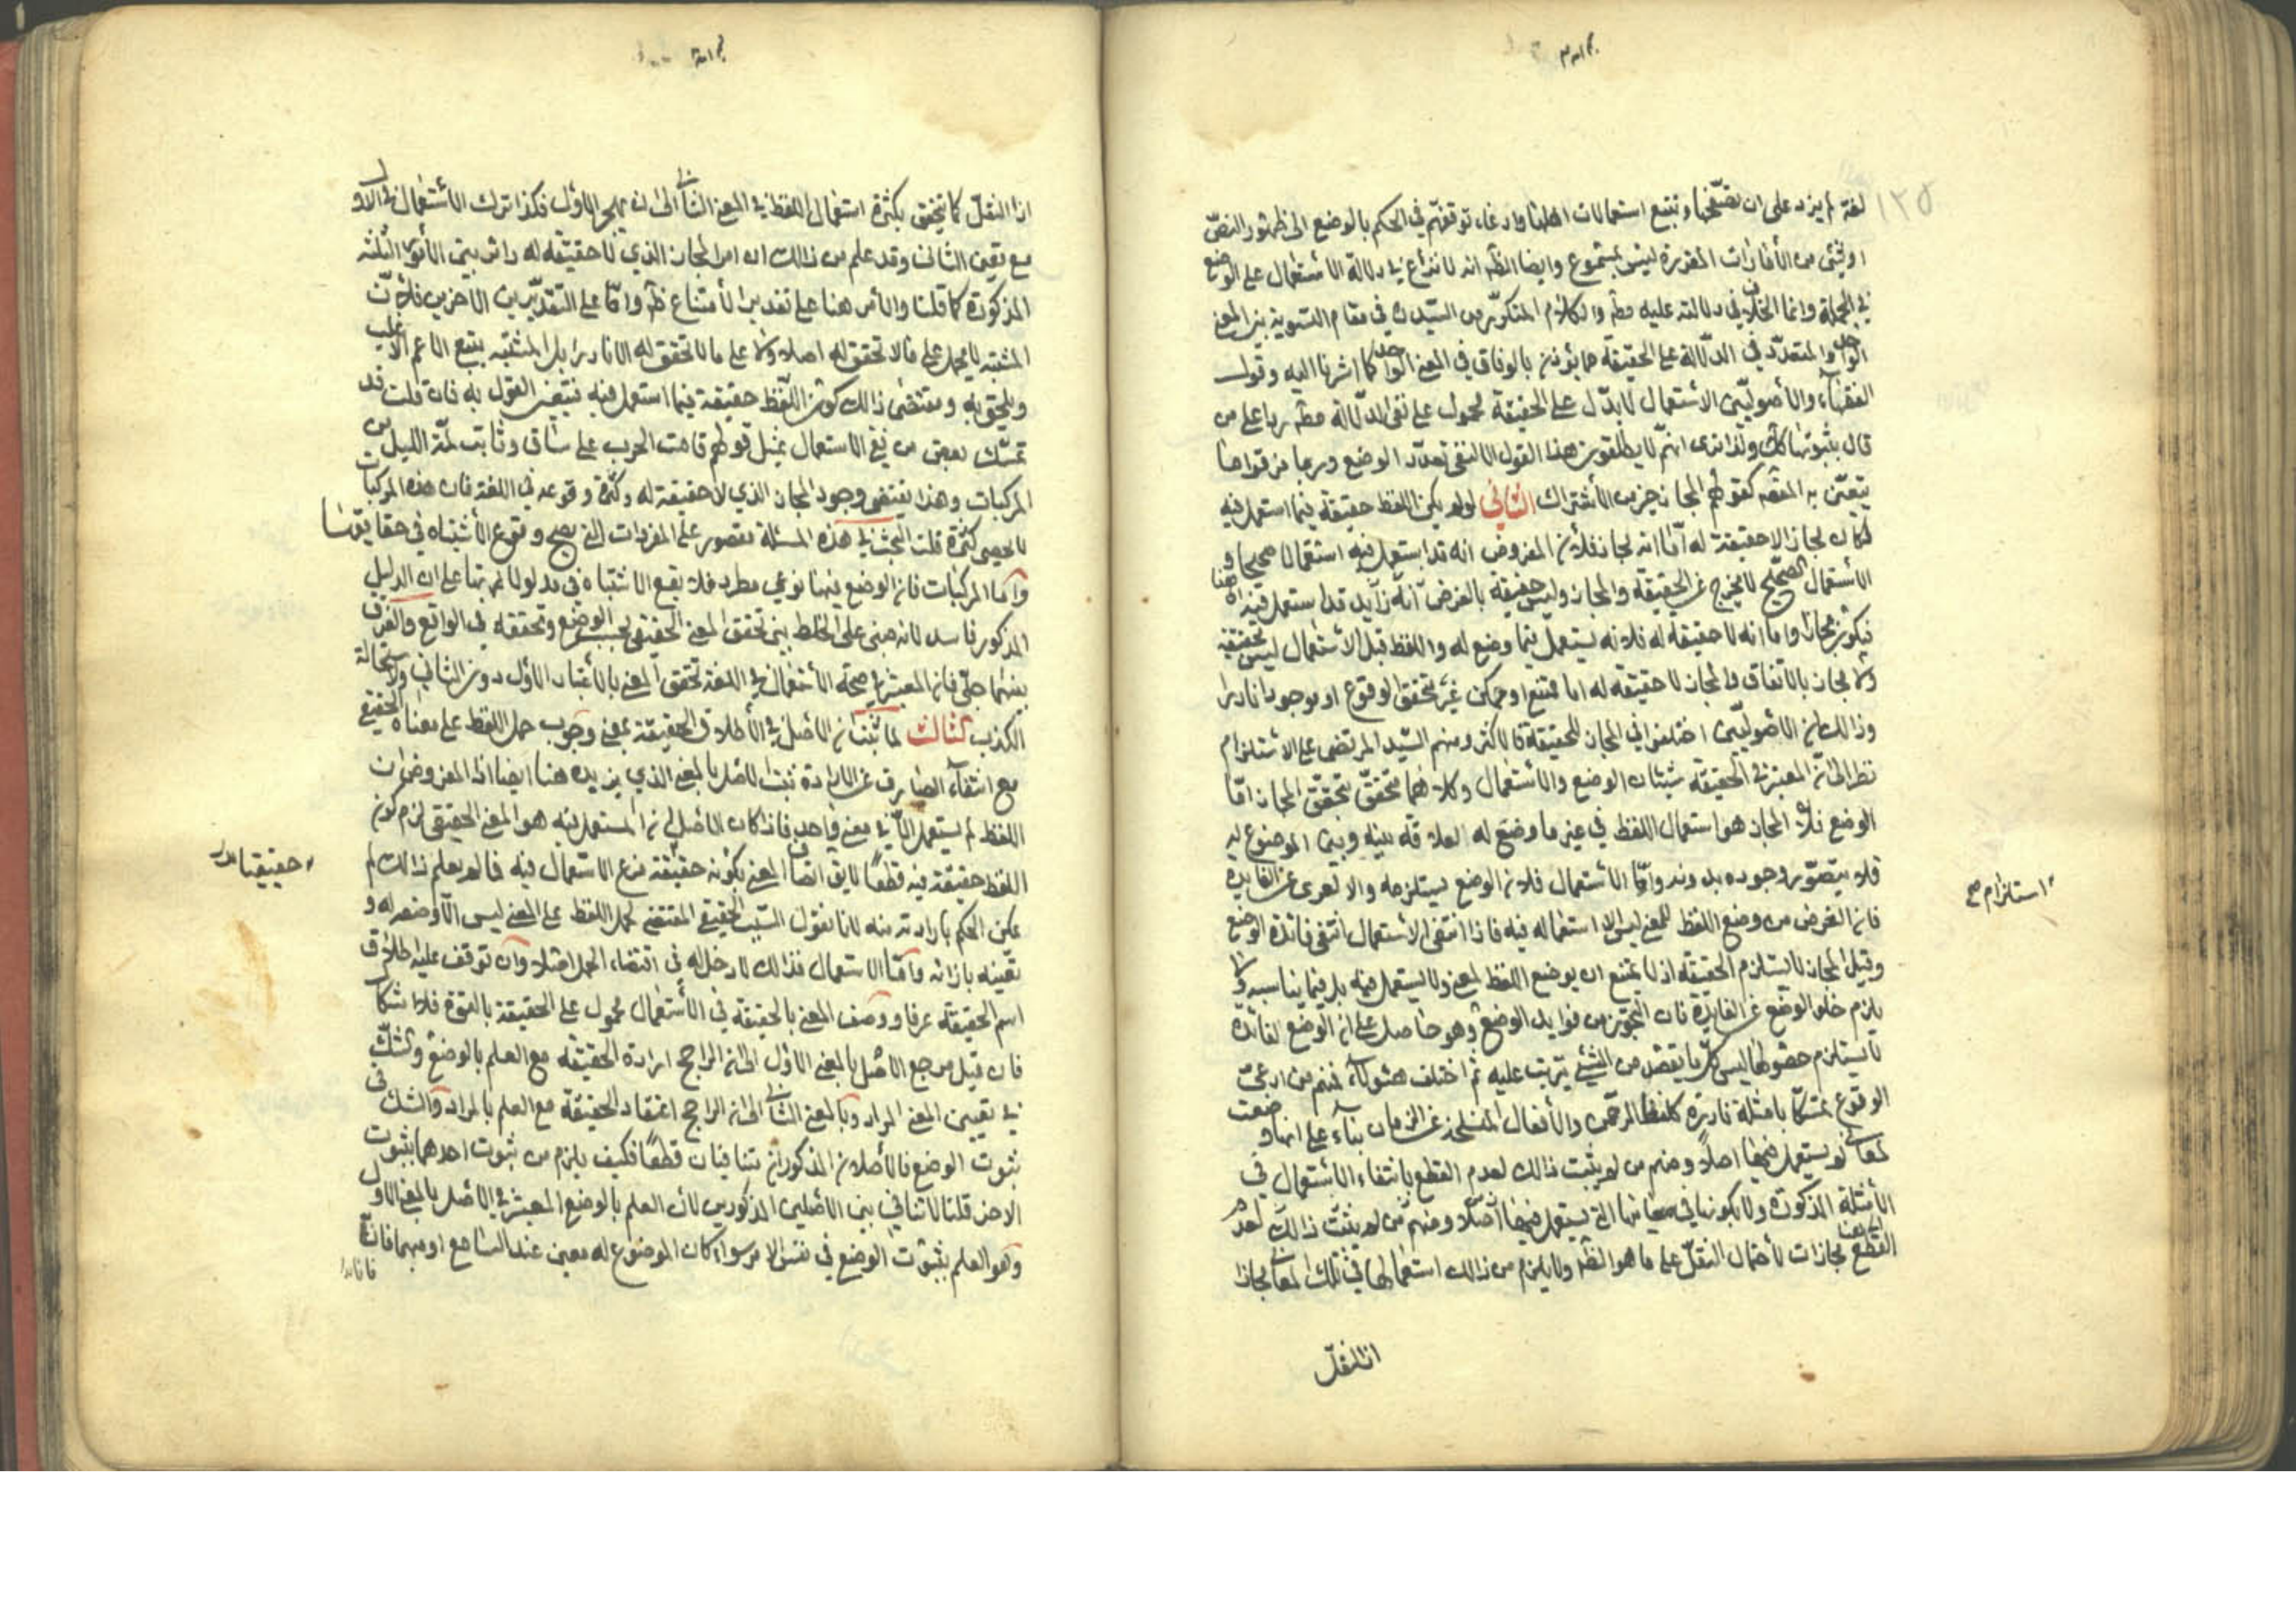 ١٢٥
لغة لم يزد على ان تصفحها وتتبع استعمالات اهلها وادعاء توقفهم في الحكم بالوضع الى ظهور النص
او شئ من الأمارات المقررة ليس بمسموع وايضا الظ انه لا نزاع في دلالة الأستعمال على الوضع
في الجملة وانما الخلاف في دلالته عليه مط والكلام المتكرر من السيد ره في مقام التسوية بين المعنى
الواحد والمتعدد في الدلالة على الحقيقة مما يؤذن بالوفاق في المعنى الواحد كما اشرنا اليه وقول
الفقهاء والأصوليين الأستعمال لا يدل على الحقيقة محمول على نفي الدلالة مط ردا على من
قال بثبوتها كك ولذا ترى انهم لا يطلقون هذا القول الا لنفي تعدد الوضع وربما قرنوا هنا
يتعين به المقصد كقولهم المجاز خير من الأشتراك الثاني لو لم يكن اللفظ حقيقة فيما استعمل فيه
لكان مجازا لا حقيقة له أما انه مجاز فلأن المفروض انه قد استعمل فيه استعمالا صحيحا و
الأستعمال الصحيح لا يخرج عن الحقيقة والمجاز وليس حقيقة بالفرض اذ قد استعمل فيه هنا
فيكون مجازا واما انه لا حقيقة له فلأنه لم يستعمل فيما وضع له واللفظ قبل الأستعمال ليس بحقيقة
ولا مجاز بالاتفاق والمجاز لا حقيقة له اما ممتنع او ممكن غير متحقق الوقوع او موجود نادرا
وذالك لأن الأصوليين اختلفوا في المجاز للحقيقة فالاكثر ومنهم السيد المرتضى على الاستلزام
نظرا الى ان المعتبر في الحقيقة شيئان الوضع والأستعمال وكلاهما متحقق بتحقق المجاز امّا
الوضع فلأن المجاز هو استعمال اللفظ في غير ما وضع له لعلاقة بينه وبين الموضوع له
فلا يتصور وجوده بدونه وأمّا الأستعمال فلأن الوضع يستلزمه والا لعرى عن الفايدة
فان الغرض من وضع اللفظ للمعنى ليس الا استعماله فيه فاذا انتفى الأستعمال انتفى فائدة الوضع
وقيل المجاز لا يستلزم الحقيقة اذ لا يمتنع ان يوضع اللفظ لمعنى ولا يستعمل فيه بل فيما يناسبه ولا
يلزم خلو الوضع عن الفايدة فان التجوز من فوايد الوضع وهو حاصل على ان الوضع لفائدة
لا يستلزم حصولها ليس كل ما يقصد من الشئ يترتب عليه ثم اختلف هؤلاء فمنهم من ادعى
الوقوع تمسكا بامثلة نادرة كلفظ الرحمن والأفعال المنسلخة عن الزمان بناء على انها وضعت
لمعان لم يستعمل فيها اصلا ومنهم من لم يثبت ذالك لعدم القطع بانتفاء الأستعمال في
الأمثلة المذكورة ولا بكونها في معانيها التي يستعمل فيها اصلا ومنهم من لم يثبت ذالك لعدم
القطع هنا مجازات لأحتمال النقل على ما هو الظ ولا يلزم من ذالك استعمالها في تلك المعاني مجازا
استلزام صح
اذ النقل
اذ النقل كما يتحقق بكثرة استعمال اللفظ في المعنى الثاني الى ان يهجر الأول فكذا ترك الأستعمال في الأول
مع تعين الثاني وقد علم من ذالك ان امر المجاز الذي لا حقيقة له دائر بين الأمور الثلثة
المذكورة كما قلنا والأمر هنا على تقدير الأمتناع ظ وامّا على التقديرين الأخرين فلأن
المشتبه لا يحمل على ما لا تحقق له اصلا ولا على ما لا تحقق له الا نادرا بل المشتبه يتبع الأعم الأغلب
ويلحق به ومقتضى ذالك كون اللفظ حقيقة فيما استعمل فيه فيتعين القول به فان قلت قد
تمسك بعض من نفى الاستعمال بمثل قولهم قامت الحرب على ساق وشابت لمة الليل من
المركبات وهذا يقتضي وجود المجاز الذي لا حقيقة له وكثرة وقوعه في اللغة فان هذه المركبات
لا تحصى كثرة قلت البحث في هذه المسئلة مقصور على المفردات التي يصح وقوع الأشتباه في حقايقها
وأما المركبات فان الوضع فيها نوعي مطرد فلا يقع الاشتباه في مدلولاتها على ان الدليل
المذكور فاسد لانه مبنى على الخلط بين تحقق المعنى الحقيقي بحسب الوضع وتحققه في الواقع والفرق
بينهما جلّي فان المعتبر في صحة الأستعمال في اللغة تحقق المعنى بالأعتبار الأول دون الثاني ولاستحالة
الكذب الثالث لما ثبت ان الأصل في الأطلاق الحقيقة بمعنى وجوب حمل اللفظ على معناه الحقيقي
مع انتفاء الصارف عن الارادة ثبت الأصل بالمعنى الذي يزيده هنا ايضا اذ المفروض ان
اللفظ لم يستعمل الّا في معنى واحد فاذا كان الأصل ان المستعمل فيه هو المعنى الحقيقي لزم كون
اللفظ حقيقة فيه قطعًا لا يق اتصاف المعنى بكونه حقيقة فرع الاستعمال فيه فما لم يعلم ذالك لم
يمكن الحكم بارادته منه لانا نقول السبب الحقيقي المقتضي لحمل اللفظ على المعنى ليس الّا وضعه له و
تعيينه بازائه وأمّا الاستعمال فذالك لا دخل له في اقتضاء الحمل اصلا وان توقف عليه اطلاق
اسم الحقيقة عرفا ووصف المعنى بالحقيقة في الأستعمال محمول على الحقيقة بالقوة فلا اشكال
فان قيل مرجع الأصل بالمعنى الاول الى ان الراجح ارادة الحقيقة مع العلم بالوضع والشكّ
في تعيين المعنى المراد وبالمعنى الثاني الى ان الراجح اعتقاد الحقيقة مع العلم بالمراد والشك في
ثبوت الوضع فالأصلان المذكوران يتنافيان قطعًا فكيف يلزم من ثبوت احدهما ثبوت
الاخر قلنا لا تنافي بين الأصلين المذكورين لأن العلم بالوضع المعتبر في الأصل بالمعنى الأول
وهو العلم بثبوت الوضع في نفس الامر سواء كان الموضوع له معين عند السامع او مبهما فان
حقيقيا